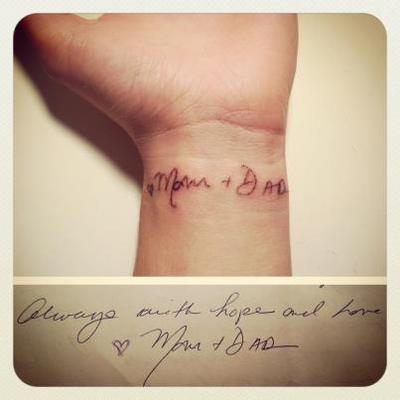 ♡ Mom + DAD
Always with hope and Love
♡ Mom + DAD